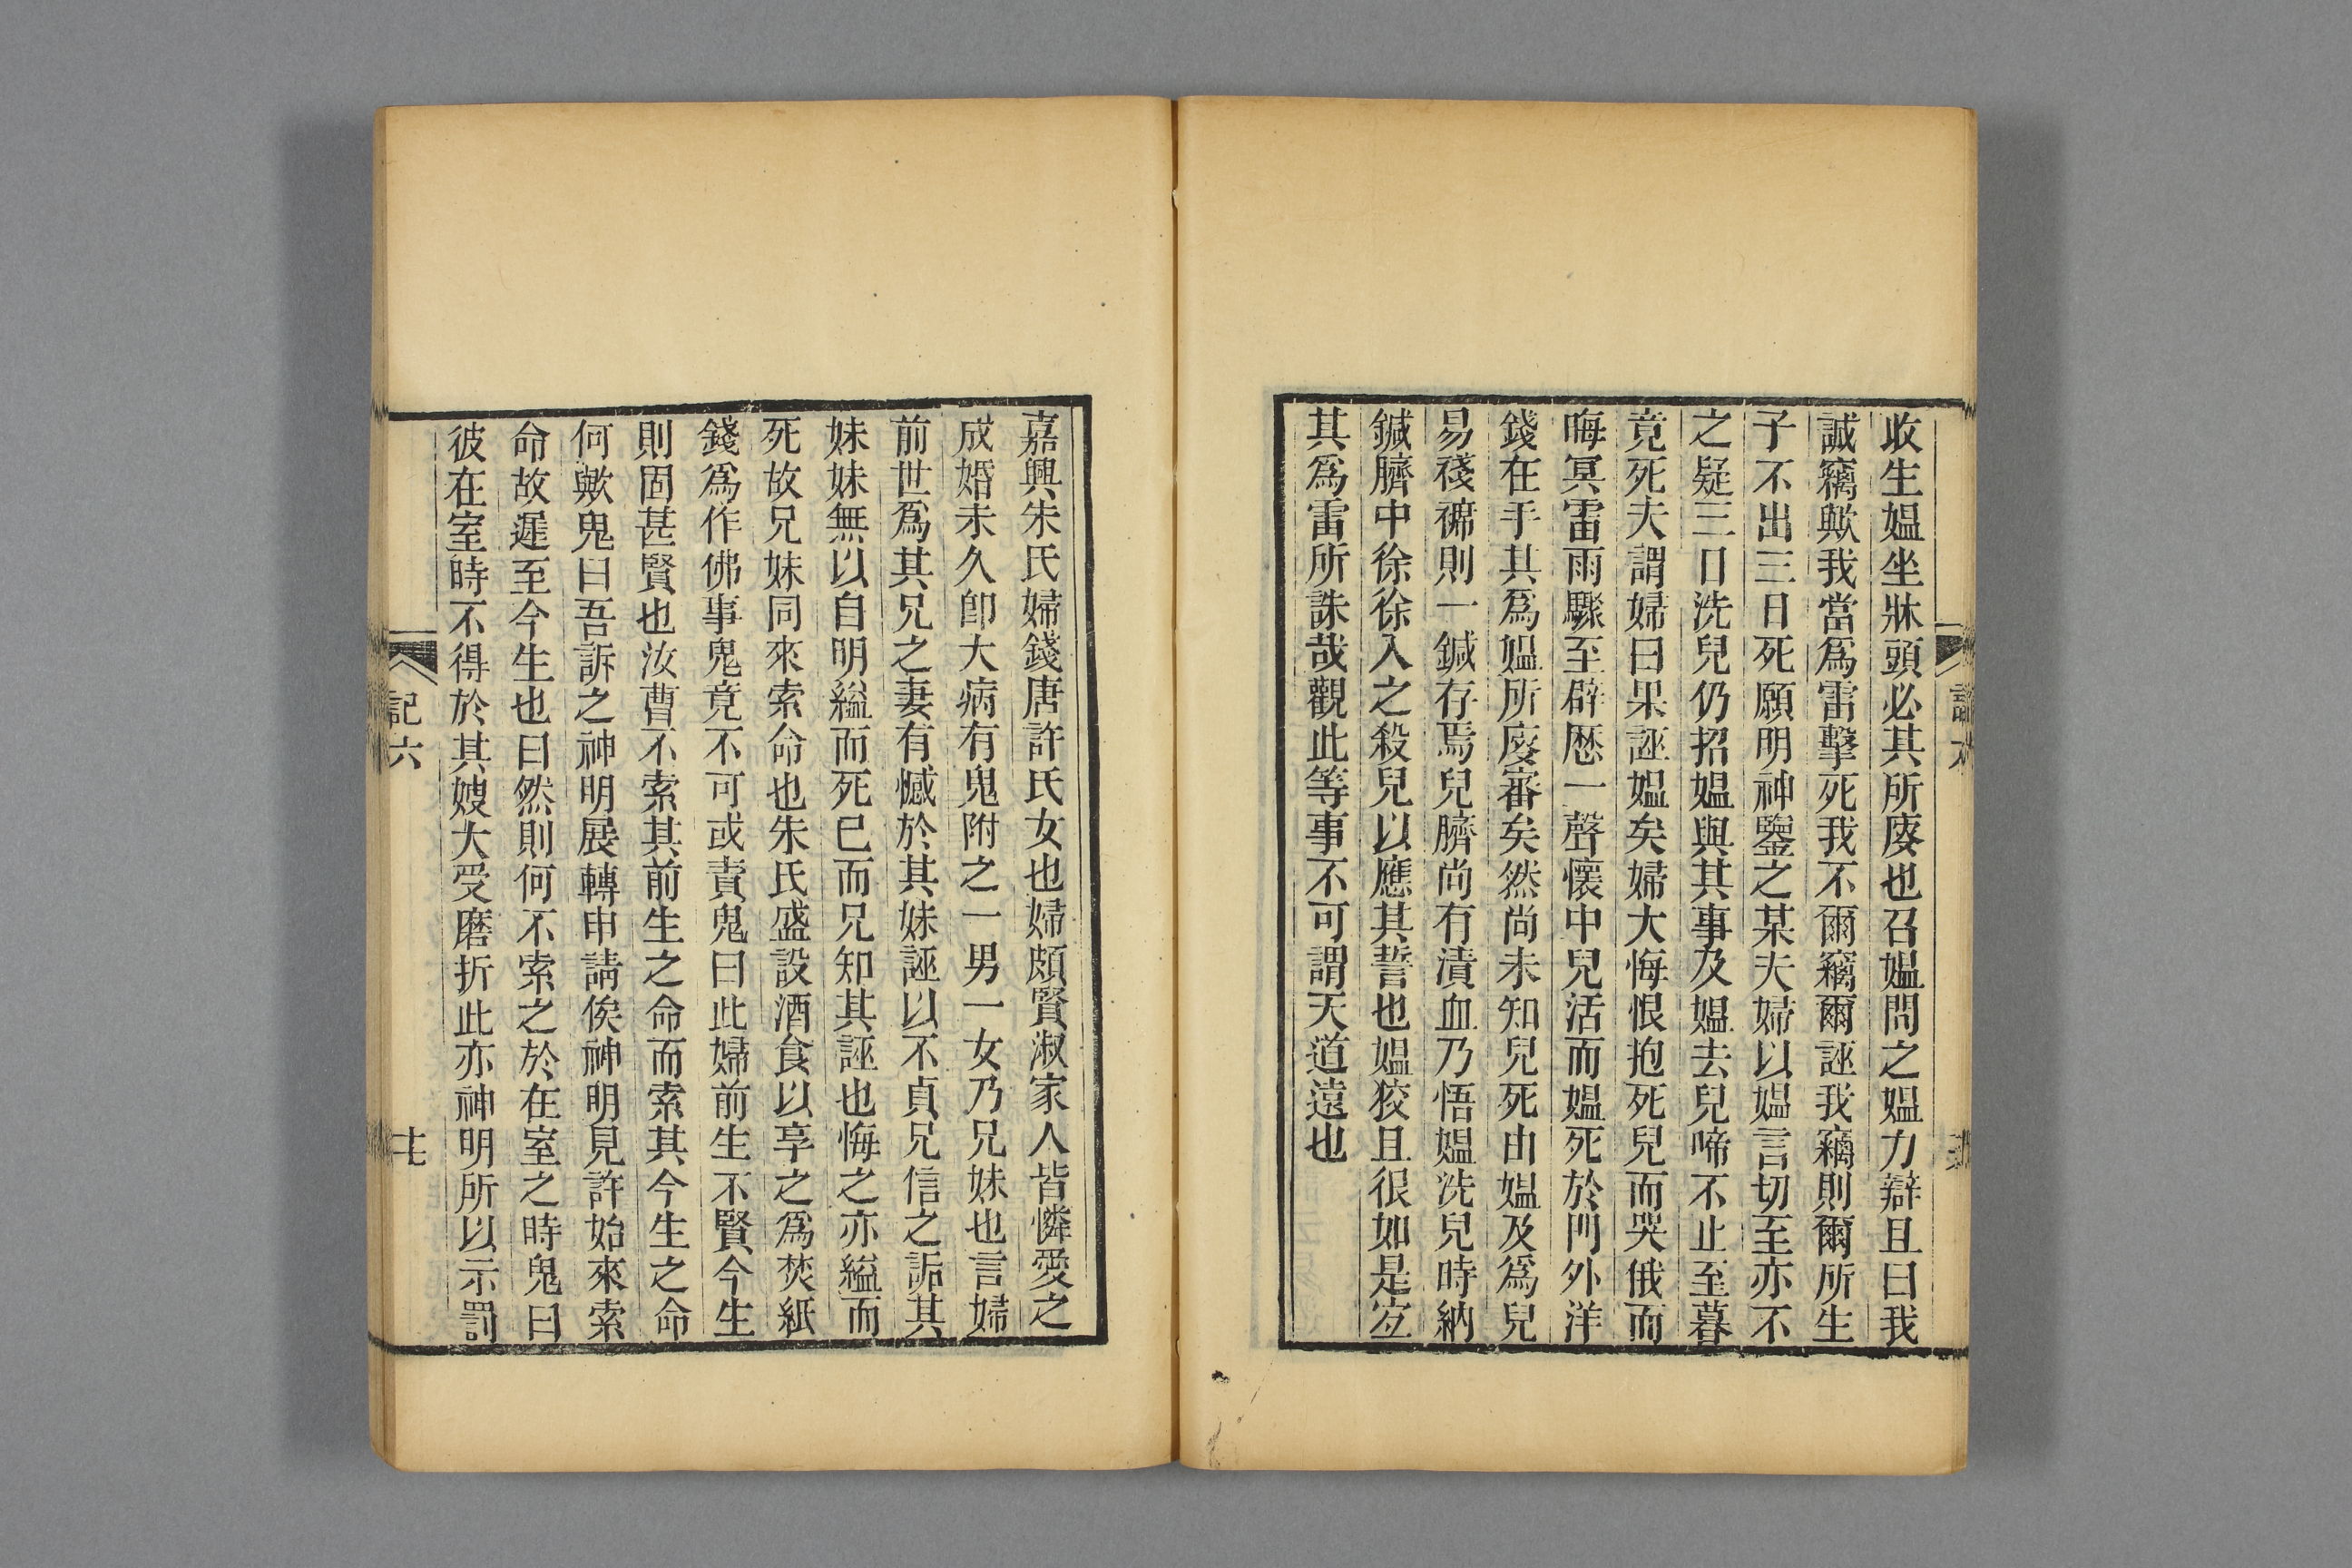 收生媼坐牀頭必其所廋也召媼問之媼力辯且曰我
誠竊歟我當爲雷擊死我不爾竊爾誣我竊則爾所生
子不出三日死願明神鑒之某夫婦以媼言切至亦不
之疑三日洗兒仍招媼與其事及媼去兒啼不止至暮
竟死夫謂婦曰果誣媼矣婦大悔恨抱死兒而哭俄而
晦冥雷雨驟至辟歷一聲懷中兒活而媼死於門外洋
錢在手其爲媼所廋審矣然尚未知兒死由媼及爲兒
易襚褯則一鍼存焉兒臍尚有漬血乃悟媼洗兒時納
鍼臍中徐徐入之殺兒以應其誓也媼狡且很如是宐
其爲雷所誅哉觀此等事不可謂天道遠也
嘉興朱氏婦錢唐許氏女也婦頗賢淑家人皆憐愛之
成婚未久卽大病有鬼附之一男一女乃兄妹也言婦
前世爲其兄之妻有憾於其妹誣以不貞兄信之詬其
妹妹無以自明縊而死已而兄知其誣也悔之亦縊而
死故兄妹同來索命也朱氏盛設酒食以享之爲焚紙
錢爲作佛事鬼竟不可或責鬼曰此婦前生不賢今生
則固甚賢也汝曹不索其前生之命而索其今生之命
何歟鬼曰吾訴之神明展轉申請俟神明見許始來索
命故遲至今生也曰然則何不索之於在室之時鬼曰
彼在室時不得於其嫂大受磨折此亦神明所以示罰
記六
十七